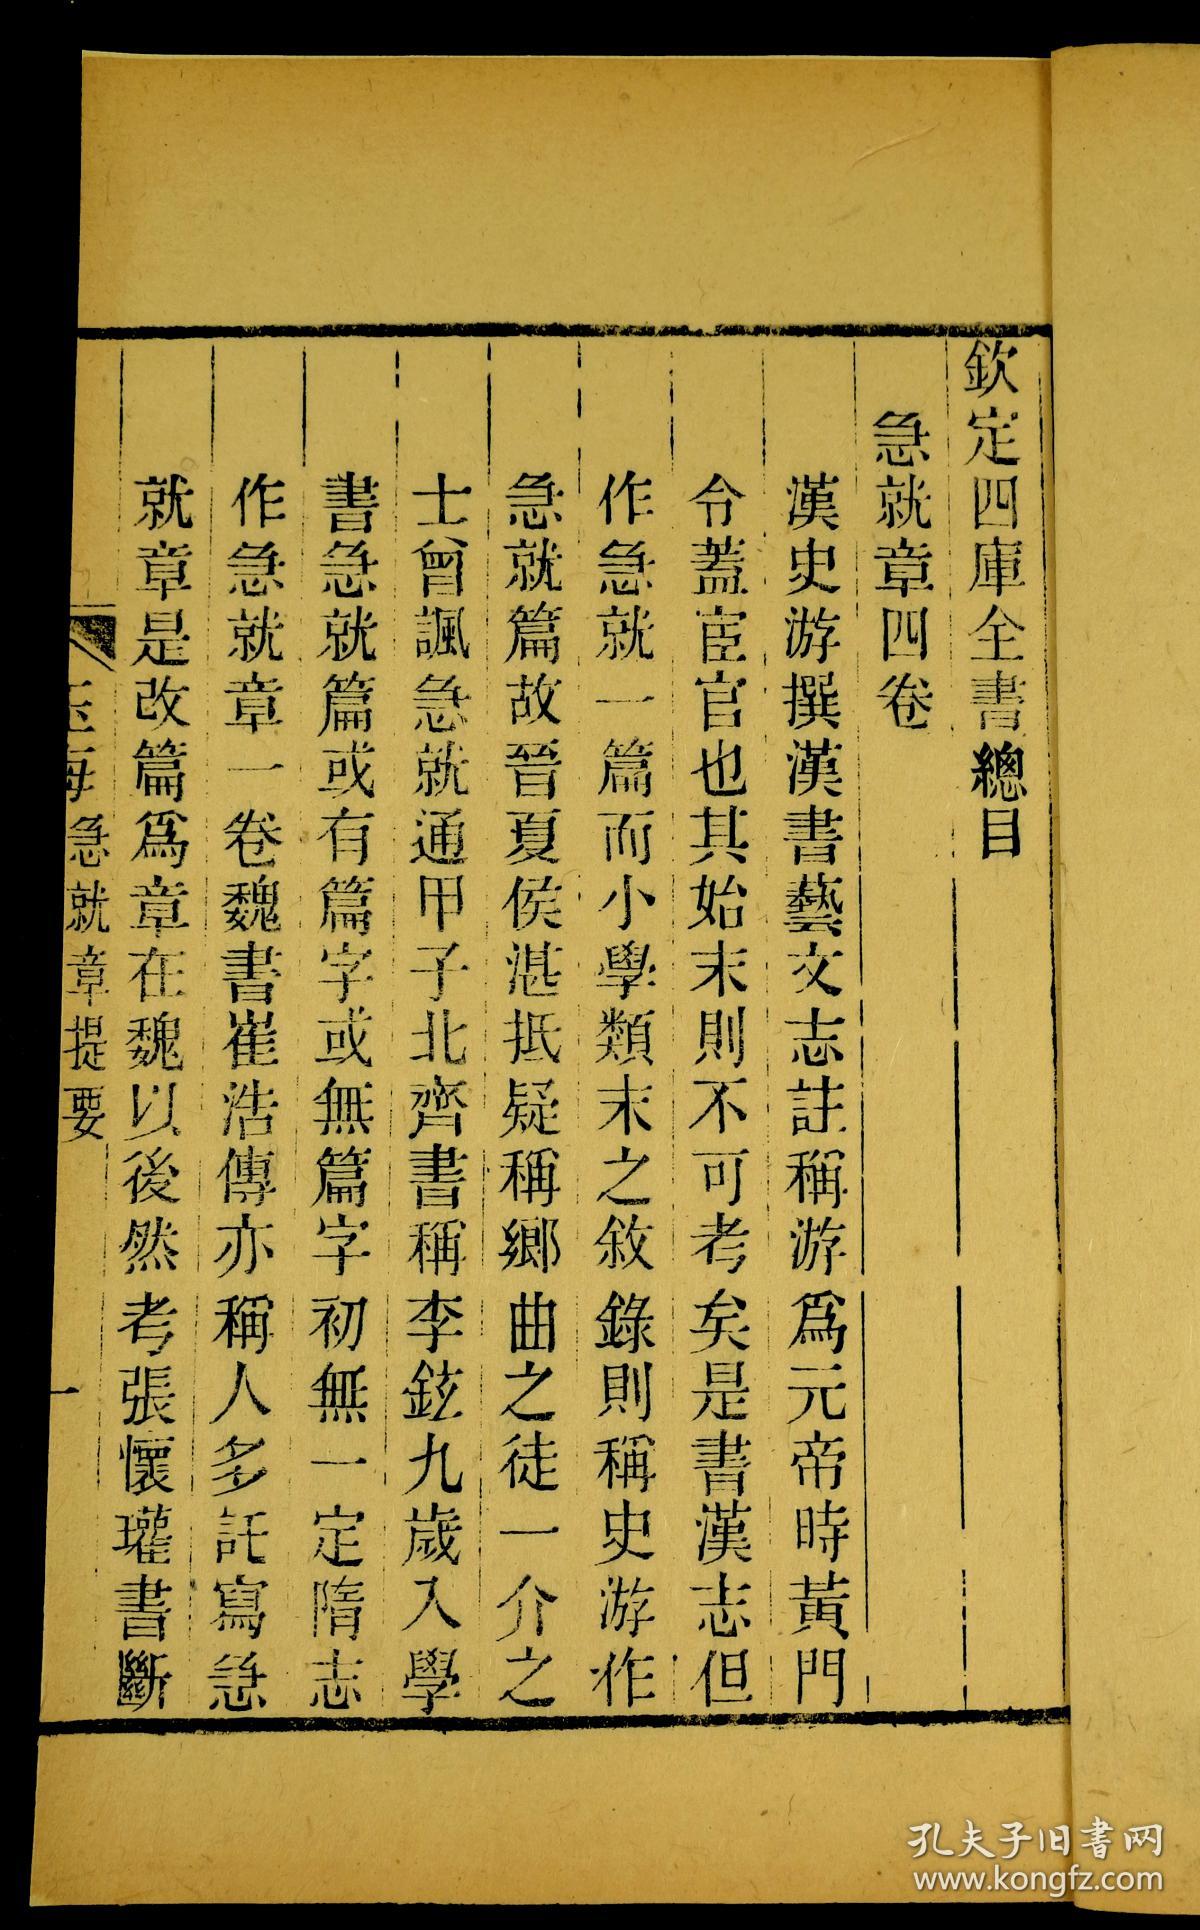 欽定四庫全書總目
急就章四卷
漢史游撰漢書藝文志註稱游爲元帝時黃門
令蓋宦官也其始末則不可考矣是書漢志但
作急就一篇而小學類末之敘錄則稱史游作
急就篇故晉夏侯湛抵疑稱鄉曲之徒一介之
士曾諷急就通甲子北齊書稱李鉉九歲入學
書急就篇或有篇字或無篇字初無一定隋志
作急就章一卷魏書崔浩傳亦稱人多託寫急
就章是改篇爲章在魏以後然考張懷瓘書斷
玉海急就章提要
一
孔夫子旧书网
www.kongfz.com